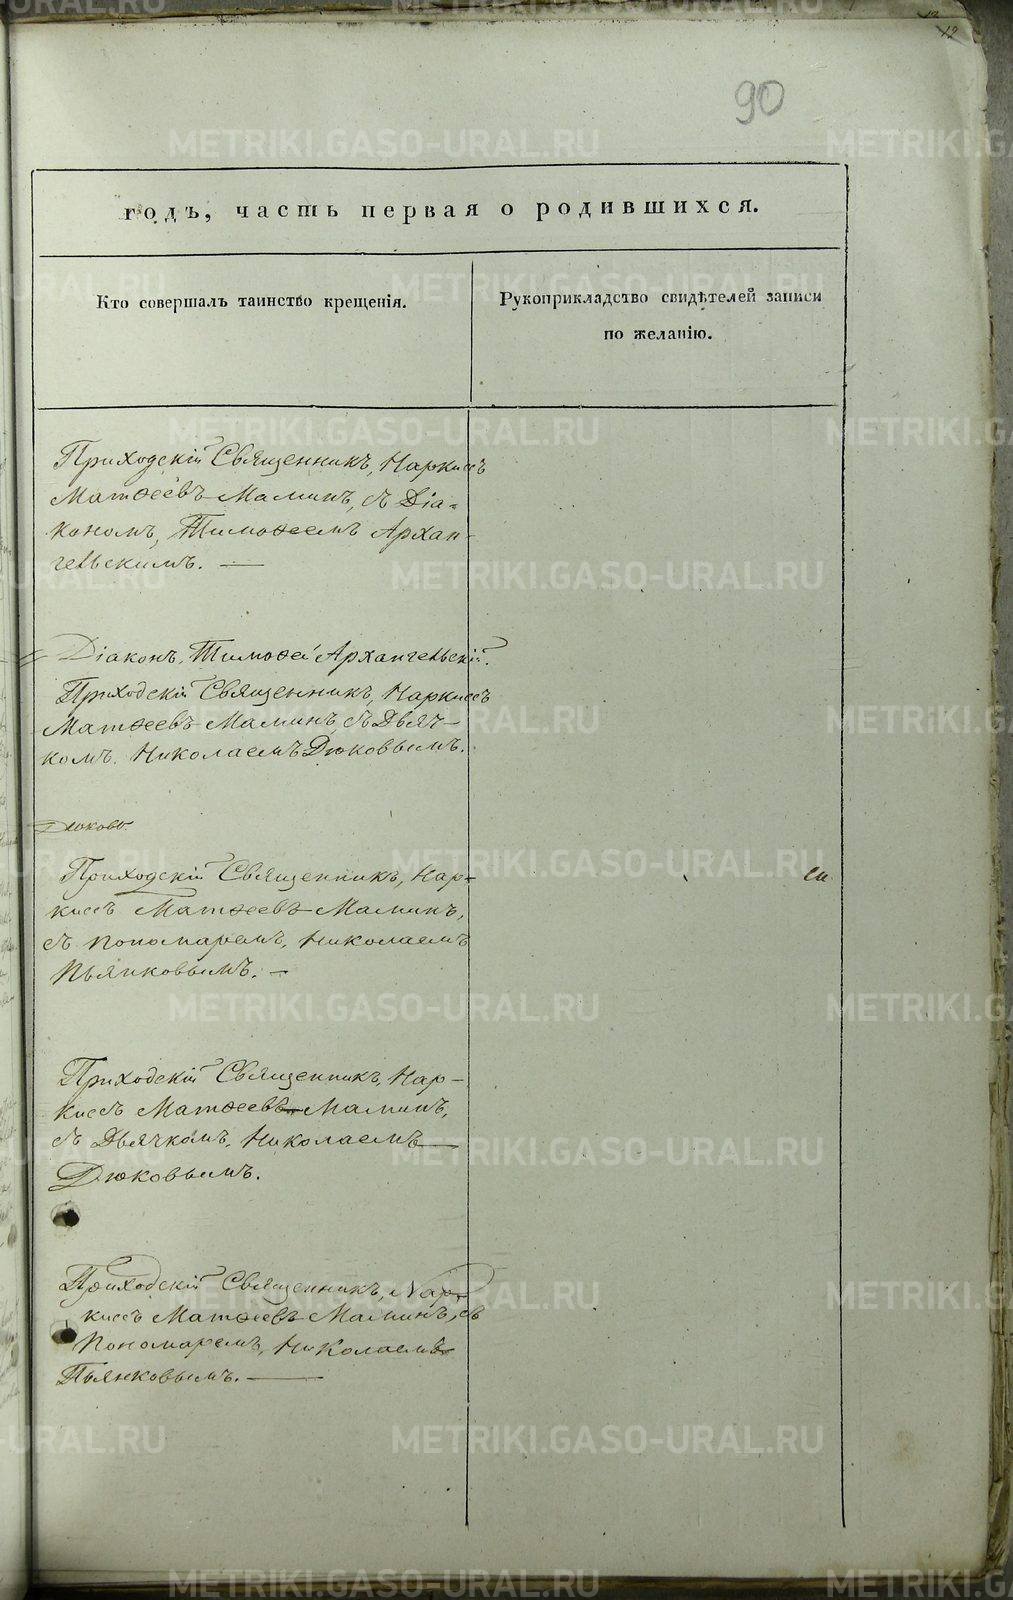 12
90
годъ, часть первая о родившихся.
Кто совершалъ таинство крещенія.
Рукоприкладство свидѣтелей записи
по желанію.
Приходскій Священникъ, Наркисъ
Матѳеевъ Маминъ, съ Діа-
кономъ, Тимоѳеемъ Архан-
гельскимъ. —
Діаконъ, Тимоѳей Архангельскій.
Приходскій Священникъ, Наркисъ
Матѳеевъ Маминъ, съ Дьяч-
комъ. Николаемъ Дюковымъ.
Дюковъ.
Приходскій Священникъ, Нар-
кисъ Матѳеевъ Маминъ,
съ пономаремъ, Николаемъ
Пьянковымъ. —
Приходскій Священникъ, Нар-
кисъ Матѳеевъ Маминъ,
съ Дьячкомъ, Николаемъ —
Дюковымъ.
Приходскій Священникъ, Нар-
кисъ Матѳеевъ Маминъ, съ
Пономаремъ, Николаемъ
Пьянковымъ. —
METRIKI.GASO-URAL.RU